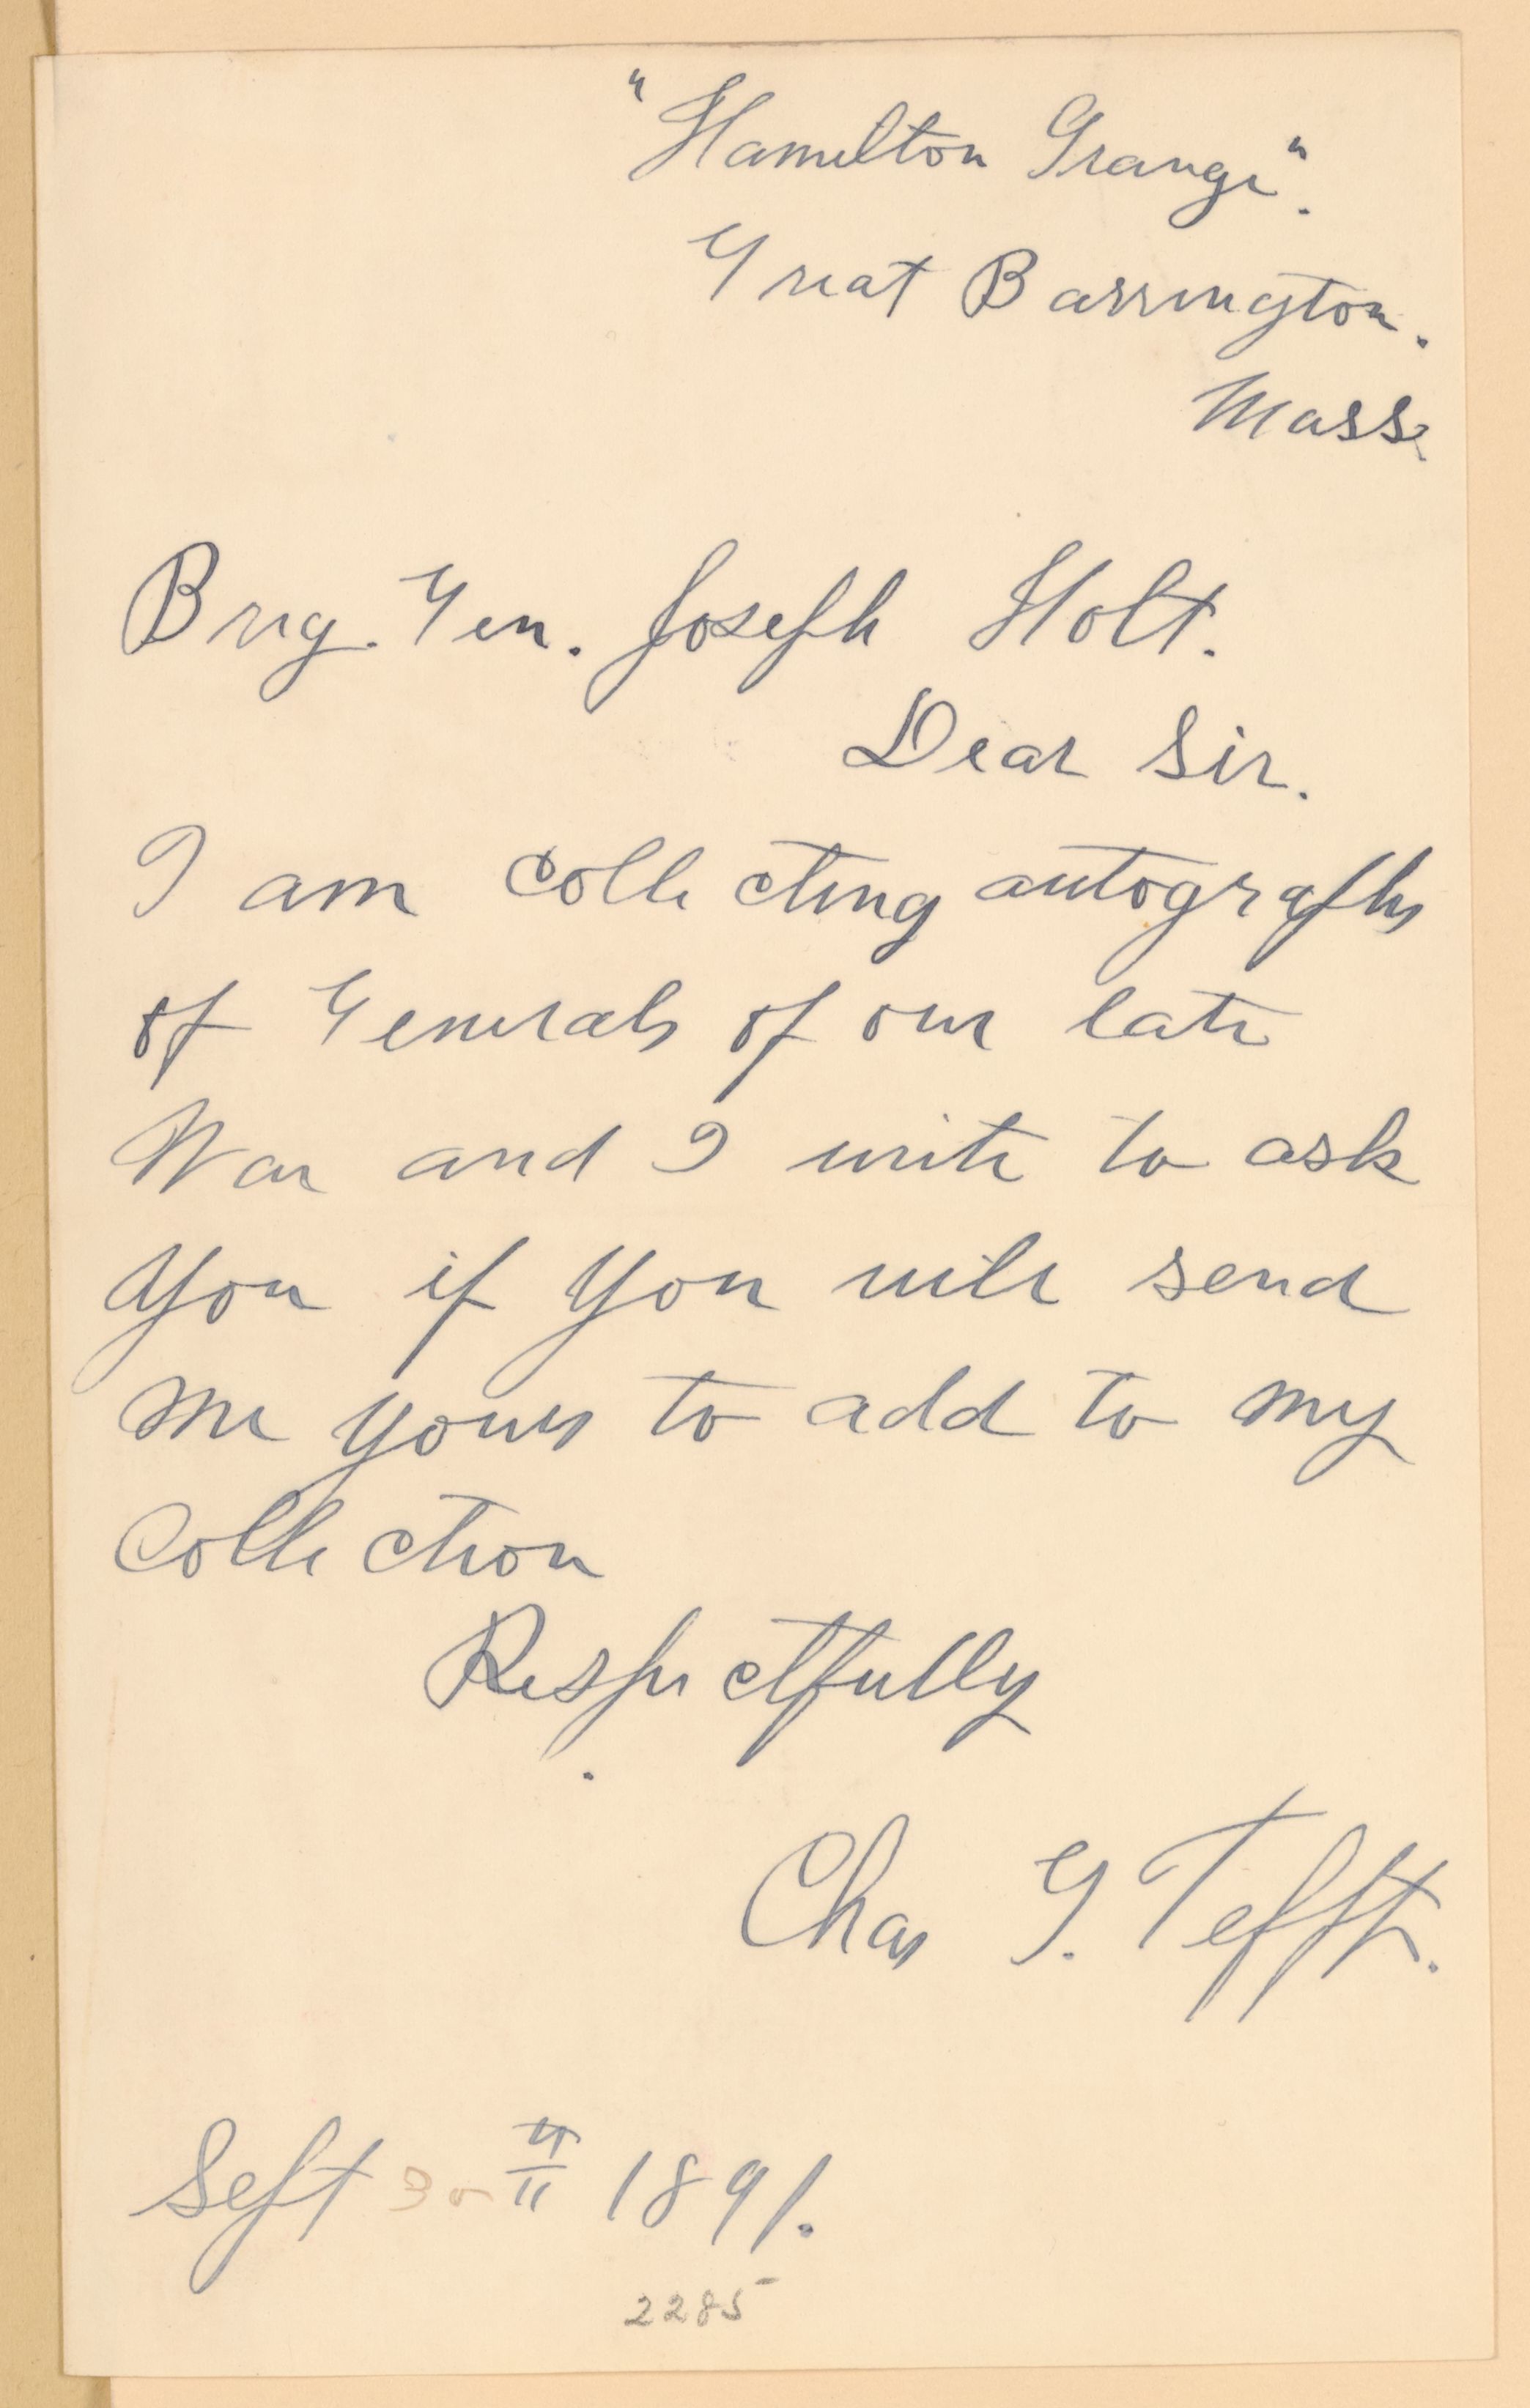 "Hamilton Grange".
Great Barrington.
Mass.
Brig. Gen. Joseph Holt.
Dear Sir.
I am collecting autographs
of Generals of our late
War and I write to ask
You if You will send
me yours to add to my
Collection
Respectfully
Chas G. Tefft.
Sept 30th 1891.
2285